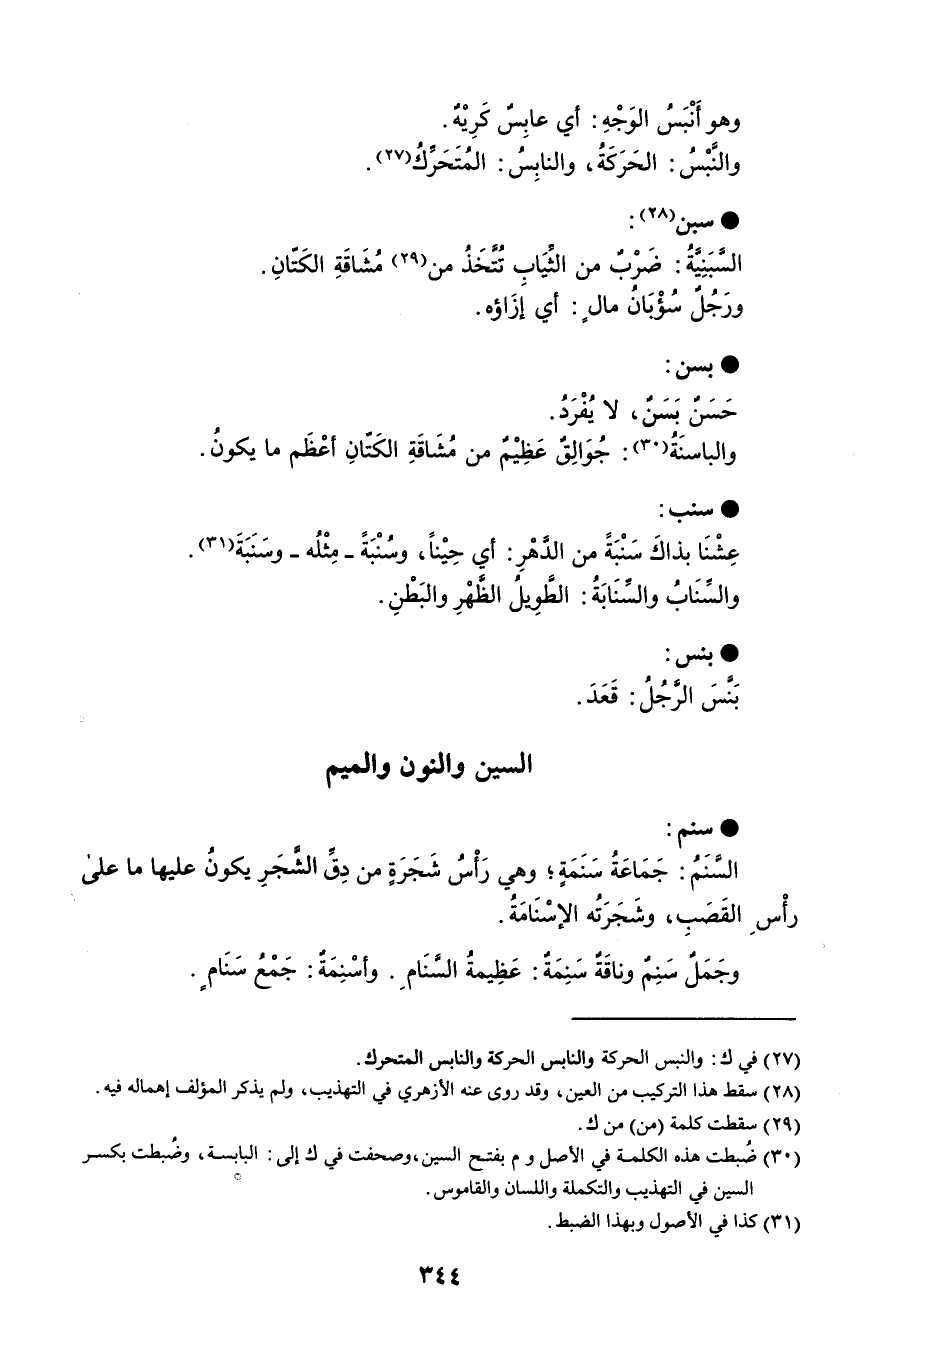 وهو أَنْبَسُ الوَجْهِ: أي عابِسٌ كَرِيْهٌ.
والنَّبْسُ: الحَرَكَةُ، والنابِسُ: المُتَحَرِّكُ(٢٧).
● سبن(٢٨):
السَّبَنِيَّةُ: ضَرْبٌ من الثِّيَابِ تُتَّخَذُ من(٢٩) مُشَاقَةِ الكَتّانِ.
ورَجُلٌ سُؤْبَانُ مالٍ: أي إزَاؤه.
● بسن:
حَسَنٌ بَسَنٌ، لا يُفْرَدُ.
والباسنَةُ(٣٠): جُوَالِقٌ عَظِيْمٌ من مُشَاقَةِ الكَتّانِ أعْظَم ما يكونُ.
● سنب:
عِشْنَا بذاكَ سَنْبَةً من الدَّهْرِ: أي حِيْناً، وسُنْبَةً ـ مِثْلُه ـ وسَنَبَةَ(٣١).
والسِّنَابُ والسِّنَابَةُ: الطَّوِيلُ الظَّهْرِ والبَطْنِ.
● بنس:
بَنَّسَ الرَّجُلُ: قَعَدَ.
السين والنون والميم
● سنم:
السَّنَمُ: جَمَاعَةُ سَنَمَةٍ؛ وهي رَأْسُ شَجَرَةٍ من دِقِّ الشَّجَرِ يكونُ عليها ما علىٰ
رأْسِ القَصَبِ، وشَجَرَتُه الإسْنَامَةُ.
وجَمَلٌ سَنِمٌ وناقَةٌ سَنِمَةٌ: عَظِيمةُ السَّنَامِ. وأسْنِمَةٌ: جَمْعُ سَنَامٍ.
(٢٧) في ك: والنبس الحركة والنابس الحركة والنابس المتحرك.
(٢٨) سقط هذا التركيب من العين، وقد روى عنه الأزهري في التهذيب، ولم يذكر المؤلف إهماله فيه.
(٢٩) سقطت كلمة (من) من ك.
(٣٠) ضُبطت هذه الكلمة في الأصل و م بفتح السين،وصحفت في ك إلى: البابسة، وضُبطت بكسر
السين في التهذيب والتكملة واللسان والقاموس.
(٣١) كذا في الأصول وبهذا الضبط.
٣٤٤